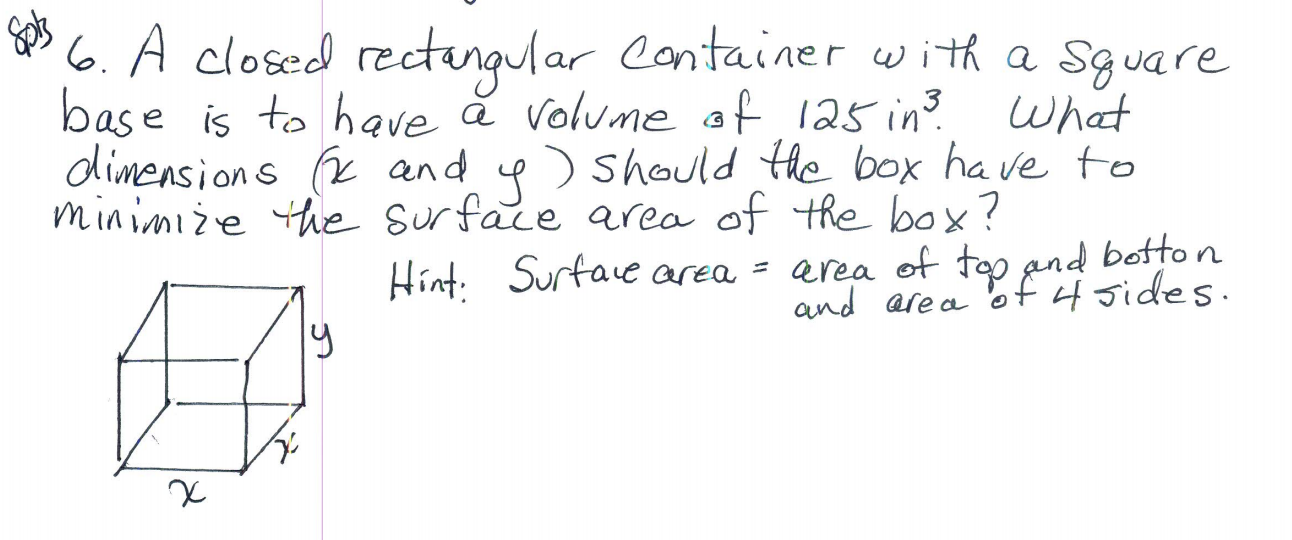 8pts
6. A closed rectangular container with a square
base is to have a volume of 125 in³. What
dimensions (x and y) should the box have to
minimize the surface area of the box?
Hint: Surface area = area of top and botton
and area of 4 sides.
y
x
x